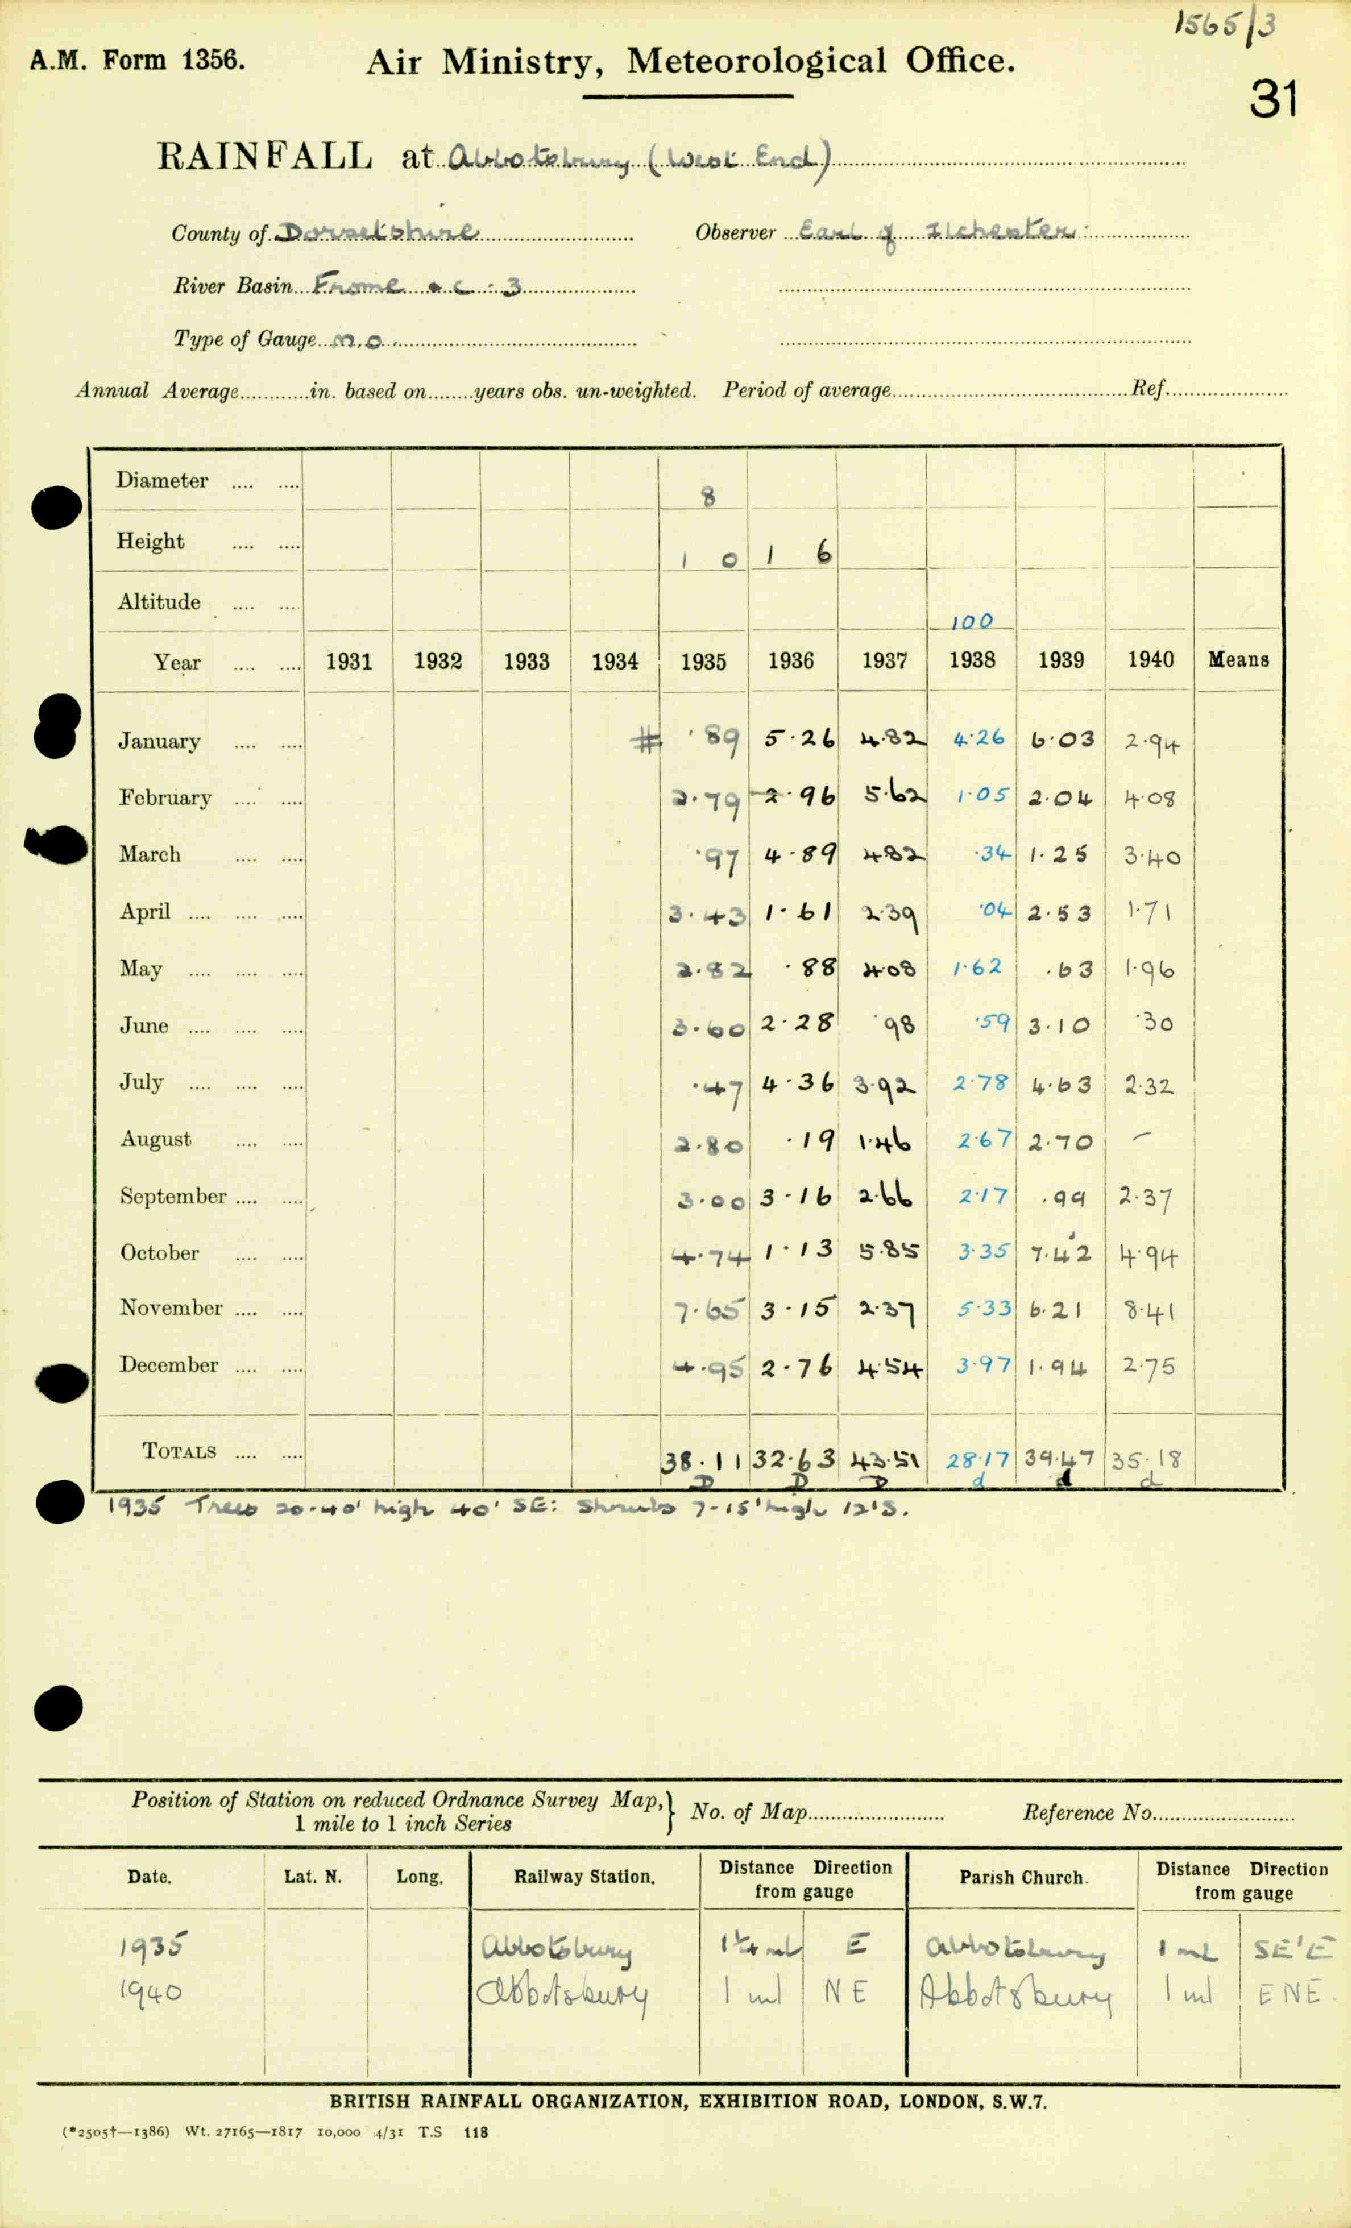 1565/3
A.M. Form 1356. Air Ministry, Meteorological Office.
31
RAINFALL at Abbotsbury (West End)
County of Dorsetshire Observer Earl of Ilchester
River Basin Frome &c - 3
Type of Gauge M.O.
Annual Average............in. based on........years obs. un-weighted. Period of average........................................Ref.....................
Diameter .... .... 8
Height .... .... 1 0 1 6
Altitude .... .... 100
Year .... .... 1931 1932 1933 1934 1935 1936 1937 1938 1939 1940 Means
January .... .... # ·89 5·26 4·82 4·26 6·03 2·94
February .... .... 2·79 2·96 5·62 1·05 2·04 4·08
March .... .... ·97 4·89 4·82 ·34 1·25 3·40
April .... .... .... 3·43 1·61 2·39 ·04 2·53 1·71
May .... .... .... 2·82 ·88 4·08 1·62 ·63 1·96
June .... .... .... 3·60 2·28 ·98 ·59 3·10 ·30
July .... .... .... ·47 4·36 3·92 2·78 4·63 2·32
August .... .... 2·80 ·19 1·46 2·67 2·70 –
September .... .... 3·00 3·16 2·66 2·17 ·99 2·37
October .... .... 4·74 1·13 5·85 3·35 7·42 4·94
November .... .... 7·65 3·15 2·37 5·33 6·21 8·41
December .... .... 4·95 2·76 4·54 3·97 1·94 2·75
TOTALS .... .... 38·11 32·63 43·51 28·17 39·47 35·18
D D D d d d
1935 Trees 20-40' high 40' SE: Shrubs 7-15' high 12'S.
Position of Station on reduced Ordnance Survey Map,} No. of Map........................ Reference No.........................
1 mile to 1 inch Series
Date. Lat. N. Long. Railway Station. Distance Direction from gauge Parish Church. Distance Direction from gauge
1935 Abbotsbury 1¼ ml E Abbotsbury 1 ml SE'E
1940 Abbotsbury 1 ml NE Abbotsbury 1 ml ENE.
BRITISH RAINFALL ORGANIZATION, EXHIBITION ROAD, LONDON, S.W.7.
(*2505†—1386) Wt. 27165—1817 10,000 4/31 T.S 118